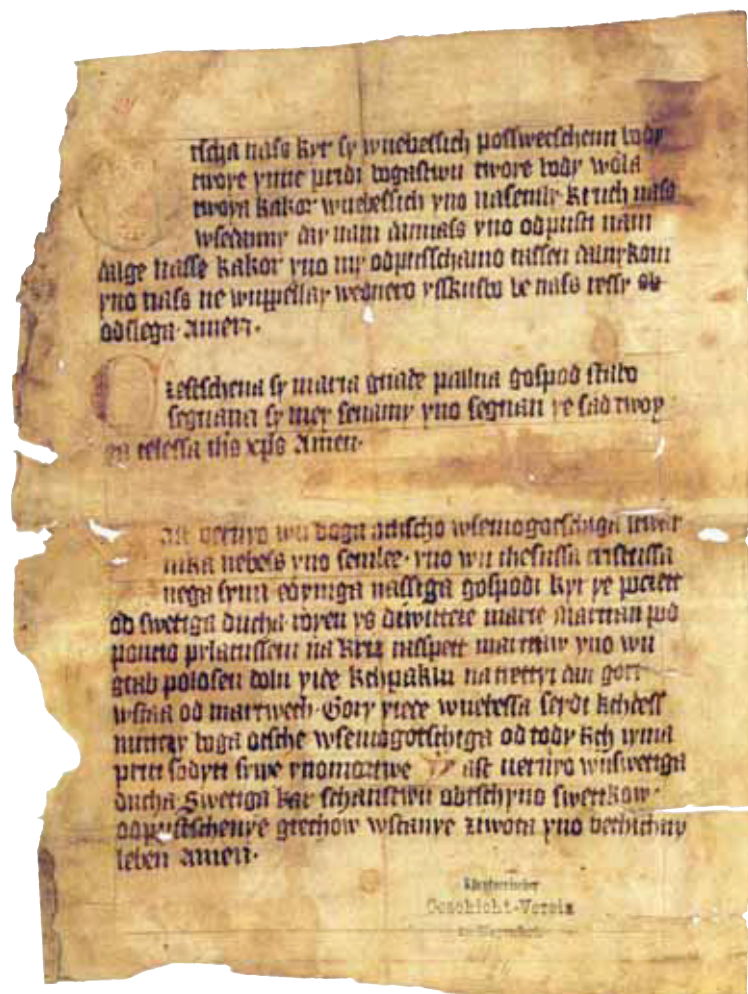 tscha nass kyr sy wuebessich posswetschenu body
twoye ymme pridi bogastwu twore body wola
twoya kakor wuebessich yno nasemly kruch nass
wsedanny day nam dannass yno odpusti nam
dalge nasse kakor yno my odpusschamo nassen dalnykom
yno nass ne wuppellay wednero ysskusbo le nass ressy od
odslega. Amen.
zestschena sy maria gnade pallna gospod stabo
segnana sy mey senamy yno segnan ye sad twoy
ga telessa ihs xps Amen.
ast veruyo wu boga otscho wsemogotschiga stwar
nika nebess yno semlee. yno wu ihesussa cristussa
nega synu edyniga nassiga gospodi kyr ye pociett
od swetiga ducha royen ys diwittere marie martran pod
poncio pylatussem na krix raspett martraw yno wu
grab polosen dolu yide kchpaklu na trettyi dan gori
wstaa od martwech. Gory yiece wuebessa sedi kchdess
nittzy boga otsche wsemogotschiga od tody kch ymma
priti sodyti sywe ynomortwe ast veruyo wuswetiga
ducha Swetiga kar schanstwu obtschyno swettkow.
odpustschenye grechow wstanye ziwota yno vechitchny
leben Amen.
Geschicht-Verein